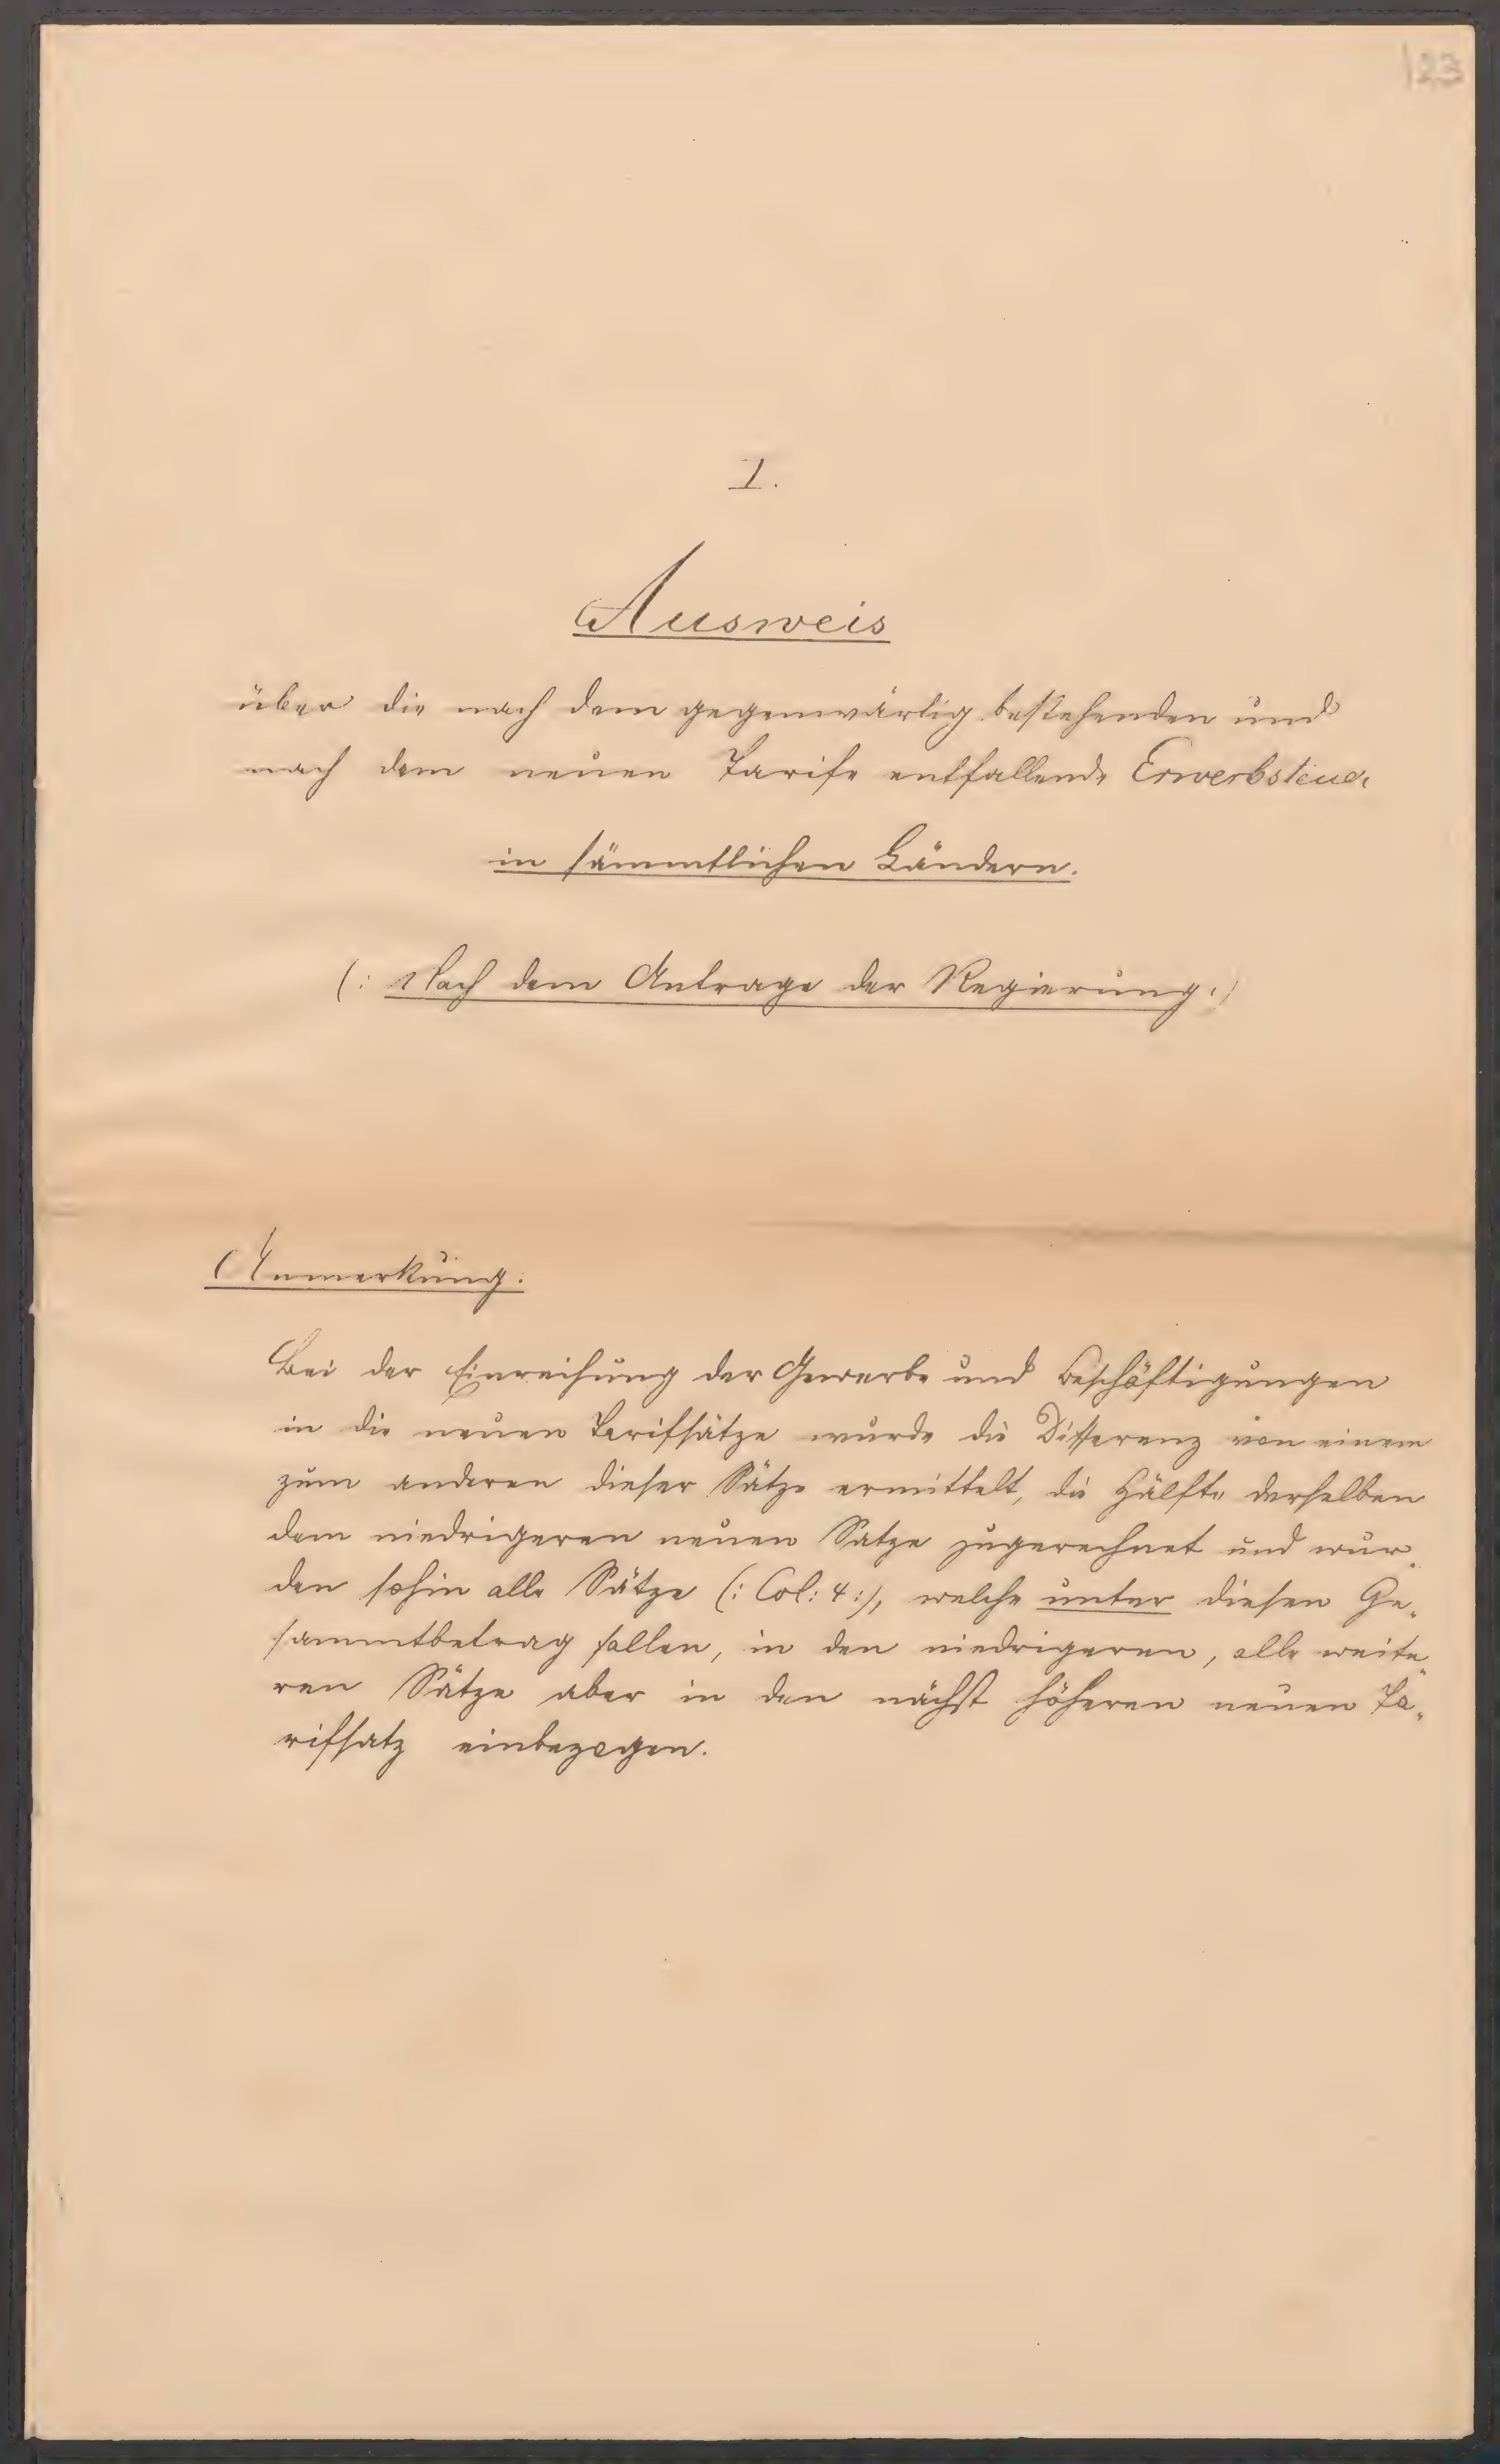 123
I.
Ausweis
über die nach dem gegenwärtig bestehenden und
nach dem neuen Tarife entfallende Erwerbsteuer
in sämmtlichen Ländern.
(: Nach dem Antrage der Regierung :)
Anmerkung.
Bei der Einreihung der Gewerbe und Beschäftigungen
in die neuen Tarifsätze wurde die Differenz von einem
zum anderen dieser Sätze ermittelt, die Hälfte derselben
dem niedrigeren neuen Satze zugerechnet und wur„
den sohin alle Sätze (: Col: 4 :), welche unter diesen Ge„
sammtbetrag fallen, in den niedrigeren, alle weite„
ren Sätze aber in den nächst höheren neuen Ta„
rifsatz einbezogen.